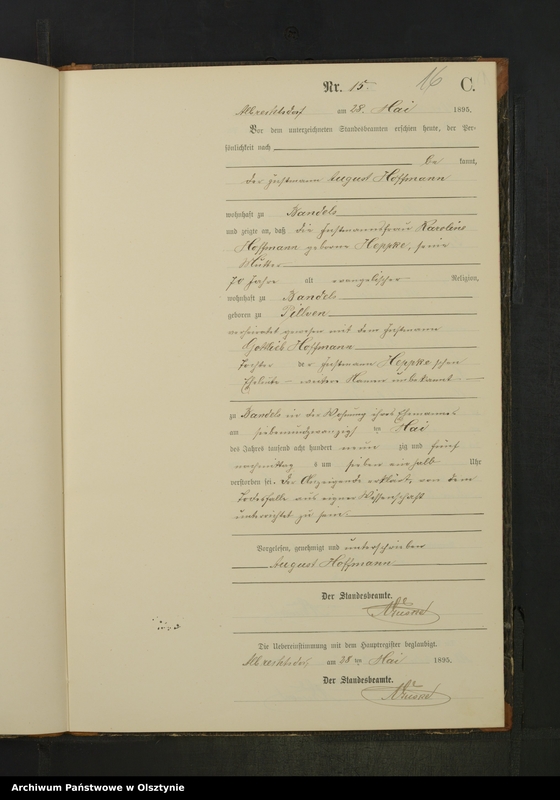 16
Nr. 15. C.
Albrechtsdorf am 28. Mai 1895.
Vor dem unterzeichneten Standesbeamten erschien heute, der Per-
sönlichkeit nach
be kannt,
der Instmann August Hoffmann
wohnhaft zu Bandels
und zeigte an, daß die Instmannsfrau Karoline
Hoffmann geborne Heppke, seine
Mutter
70 Jahre alt evangelischer Religion,
wohnhaft zu Bandels
geboren zu Pillwen
verheiratet gewesen mit dem Instmann
Gottlieb Hoffmann
Tochter der Instmann Heppke'schen
Eheleute – weitere Namen unbekannt –
zu Bandels in der Wohnung ihres Ehemannes
am siebenundzwanzigsten Mai
des Jahres tausend acht hundert neun zig und fünf
nachmittag s um sieben einhalb Uhr
verstorben sei. Der Anzeigende erklärt, von dem
Todesfalle aus eigner Wissenschaft
unterrichtet zu sein.
Vorgelesen, genehmigt und unterschrieben
August Hoffmann
Der Standesbeamte.
Die Uebereinstimmung mit dem Hauptregister beglaubigt.
Albrechtsdorf am 28 ten Mai 1895.
Der Standesbeamte.
Archiwum Państwowe w Olsztynie